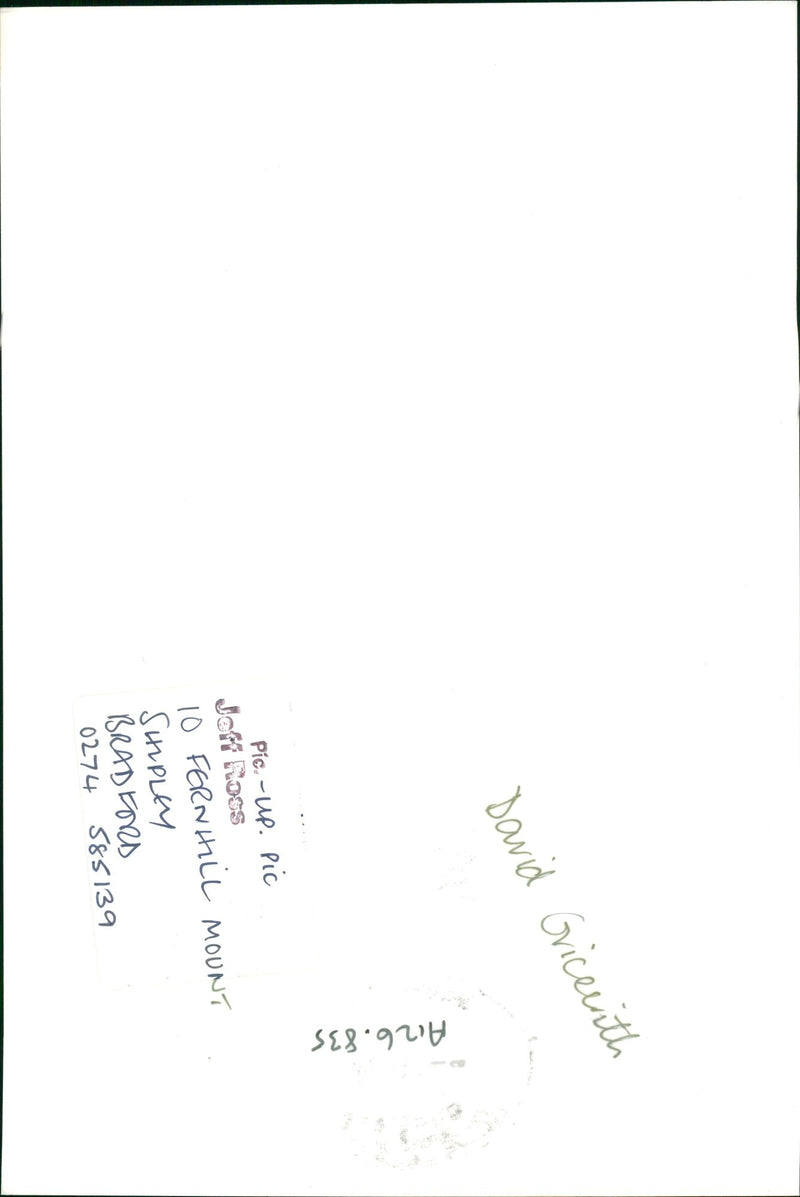 Pic.-UP. PIC
Jeff Ross
10 FERNHILL MOUNT
SHIPLEY
BRADFORD
0274 585139
David Griceuith
A126.835